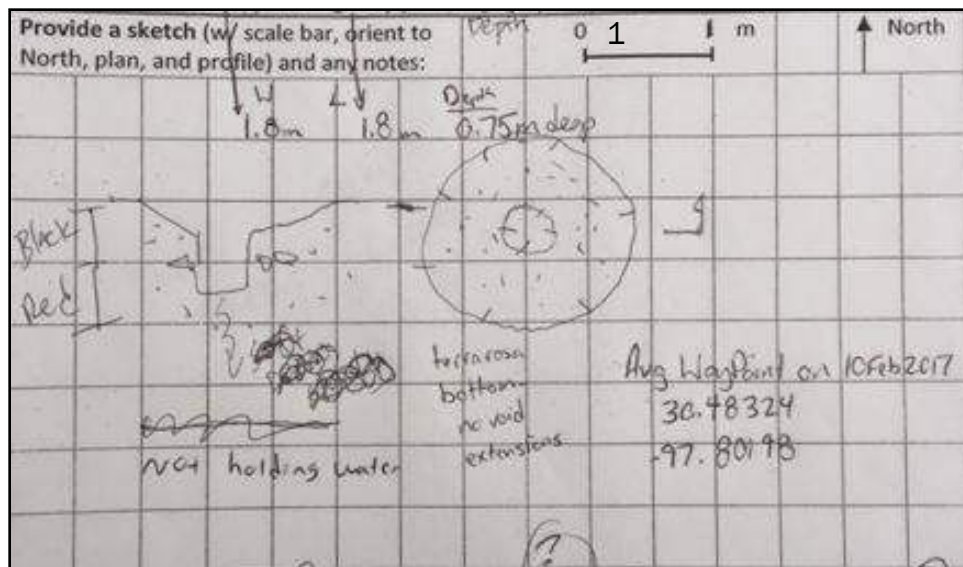 Depth
Provide a sketch (w/ scale bar, orient to
North, plan, and profile) and any notes:
0 1 m
North
W L Depth
1.8m 1.8m 0.75m deep
Black
Red
terra rosa
bottom
no void
extensions
Avg WayPoint on 10Feb2017
30.48324
-97.80198
Not holding water
?